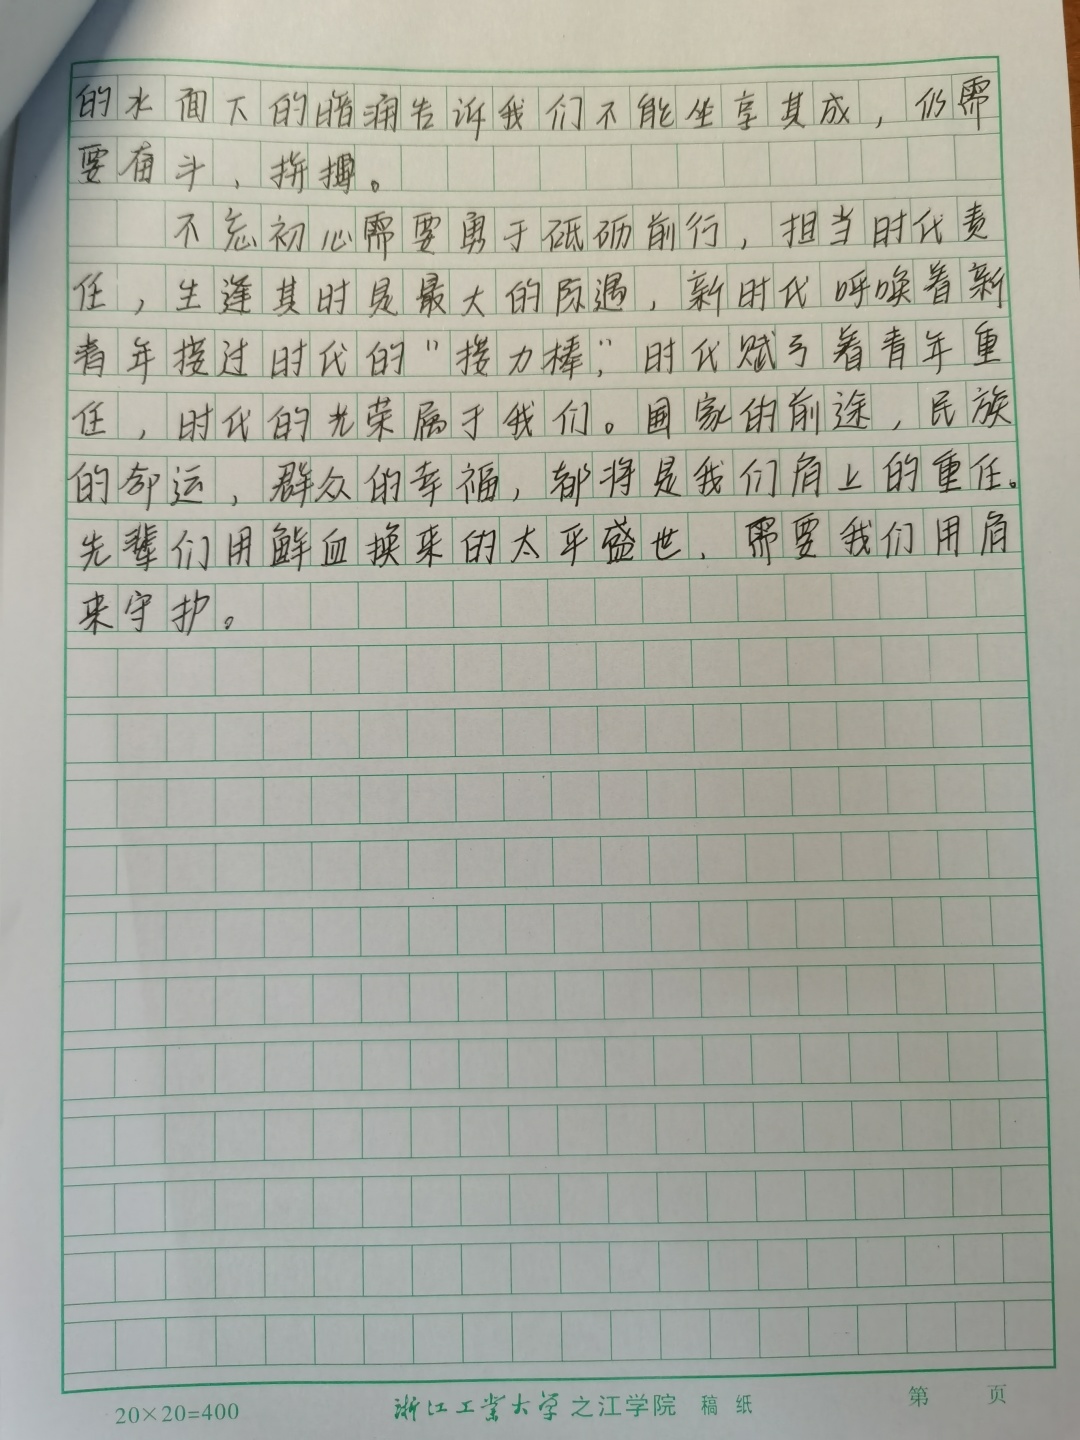 的水面下的暗涌告诉我们不能坐享其成，仍需
要奋斗、拼搏。
不忘初心需要勇于砥砺前行，担当时代责
任，生逢其时是最大的际遇，新时代呼唤着新
青年接过时代的“接力棒”，时代赋予着青年重
任，时代的光荣属于我们。国家的前途，民族
的命运，群众的幸福，都将是我们肩上的重任。
先辈们用鲜血换来的太平盛世、需要我们用肩
来守护。
20×20=400 浙江工业大学之江学院 稿纸 第 页